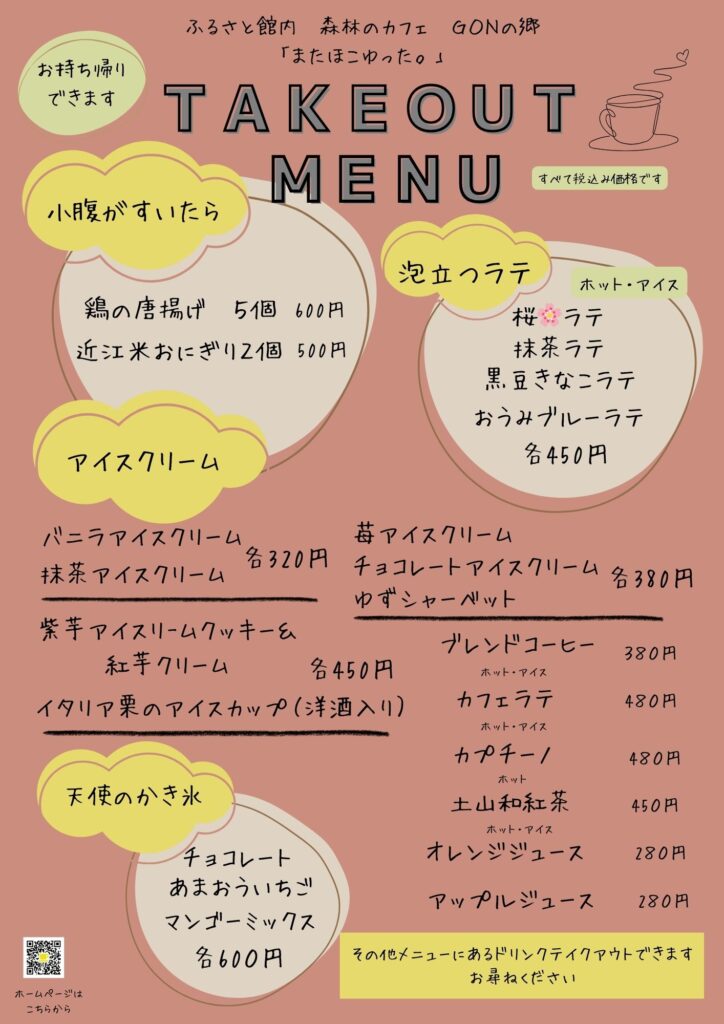 ふるさと館内　森林のカフェ　GONの郷
「またほこゆった。」
お持ち帰り
できます
TAKEOUT
MENU
すべて税込み価格です
小腹がすいたら
鶏の唐揚げ　5個　600円
近江米おにぎり2個　500円
泡立つラテ
ホット・アイス
桜🌸ラテ
抹茶ラテ
黒豆きなこラテ
おうみブルーラテ
各450円
アイスクリーム
バニラアイスクリーム
抹茶アイスクリーム
各320円
苺アイスクリーム
チョコレートアイスクリーム
ゆずシャーベット
各380円
紫芋アイスリームクッキー&
紅芋クリーム
各450円
イタリア栗のアイスカップ(洋酒入り)
ブレンドコーヒー　380円
ホット・アイス
カフェラテ　480円
ホット・アイス
カプチーノ　480円
ホット
土山和紅茶　450円
ホット・アイス
オレンジジュース　280円
アップルジュース　280円
天使のかき氷
チョコレート
あまおういちご
マンゴーミックス
各600円
その他メニューにあるドリンクテイクアウトできます
お尋ねください
ホームページは
こちらから